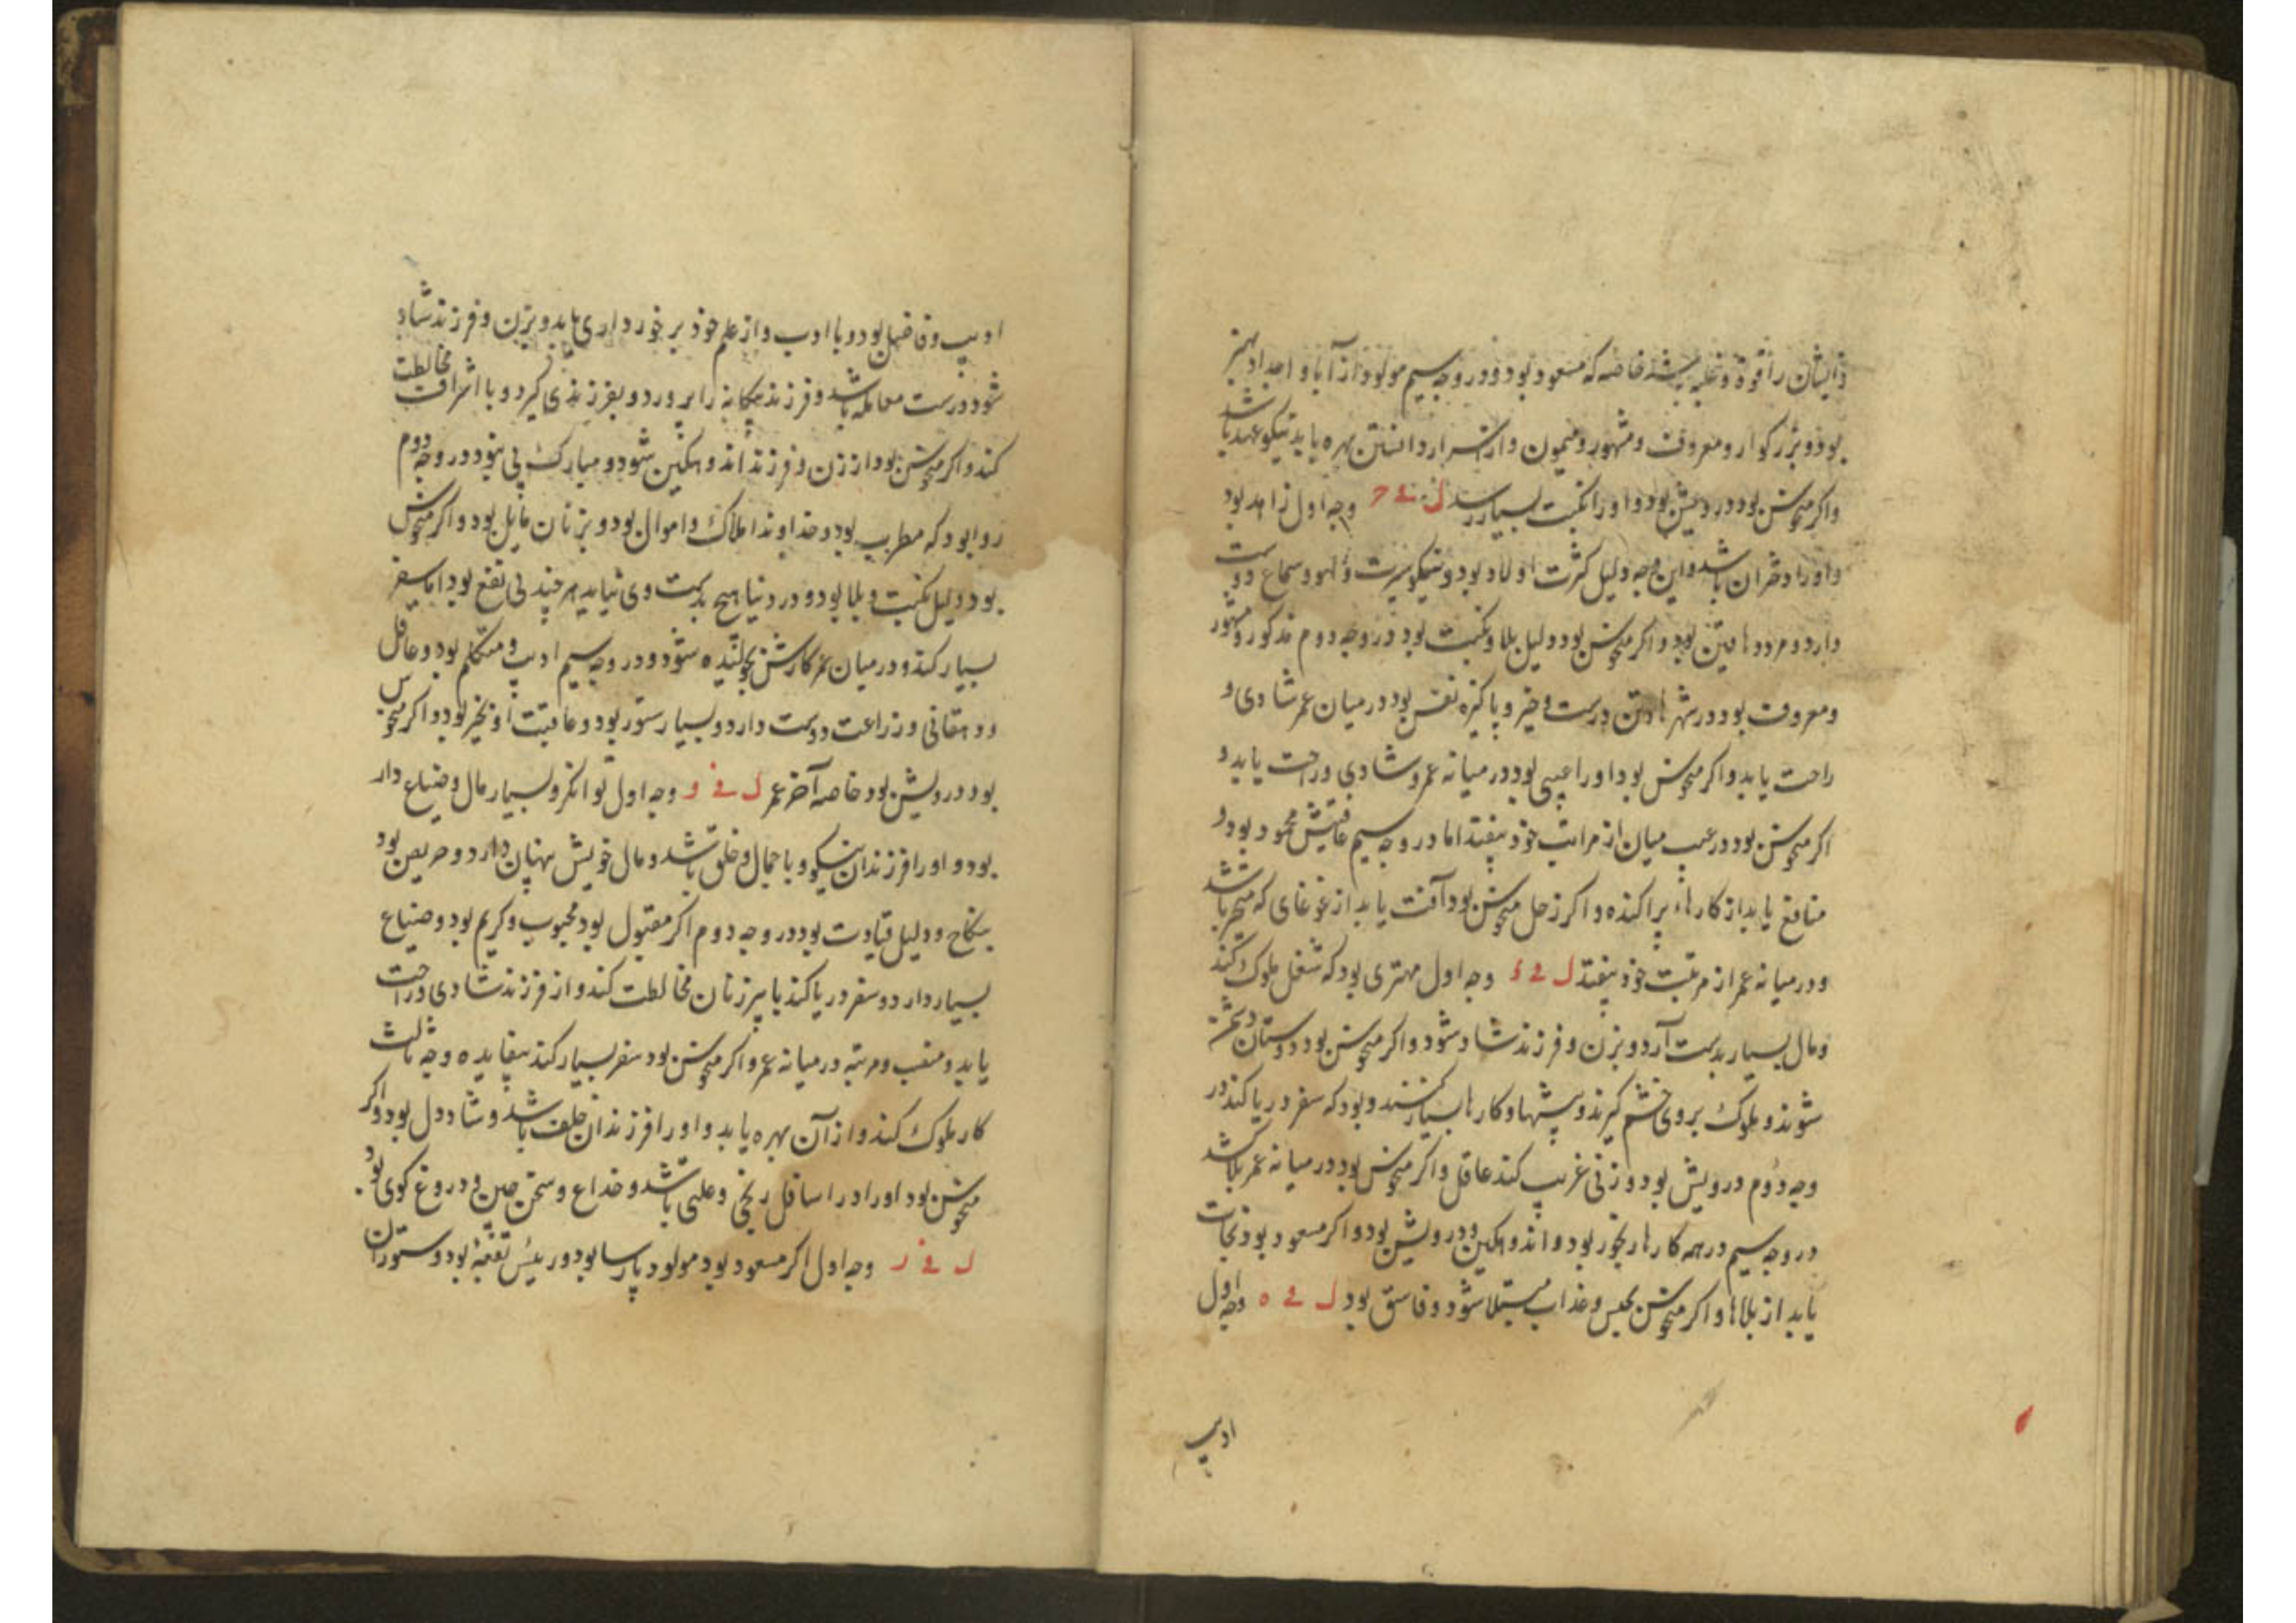 ذایشان را قوة و غلبه بیشتر خاصه که مسعود بود و در وجه سیم مولود از آبا و اجداد بهتر
بود و بزرکوار و معروف و مشهور و میمون و از اسرار دانستن بهره یابد نیکو عهد باشد
واکر منحوس بود درویش بود و اورا نکبت بسیار رسد ل ے ح وجه اول زاهد بود
و اورا دختران باشد و این وجه دلیل کثرت اولاد بود و نیکو سیرت و لهو و سماع دوست
دارد و مردد ها متین بود و اکر منحوس بود دلیل بلا و نکبت بود در وجه دوم مذکور و مشهور
و معروف بود در شهرها و تن درست و خیر و پاکیزه نفس بود در میان عمر شادی و
راحت یابد و اکر منحوس بود اورا عیبی بود در میانه عمر و شادی و راحت یابد و
اکر منحوس بود در عیب میان از مراتب خود بیفتد اما در وجه سیم عاقبتش محمود بود و
منافع یابد از کارهاء پراکنده و اکر زحل منحوس بود آفت یابد از غوغای که متحیر باشد
و در میانه عمر از مرتبت خود بیفتد ل ے ء وجه اول مهتری بود که شغل ملوک کند
و مال بسیار بدست آرد و بزن و فرزند شاد شود و اکر منحوس بود دوستان دشمن
شوند و ملوک بر وی خشم کیرند و پیشها و کارها بسیار کنند و بود که سفر دریا کند در
وجه دوم درویش بود و زنی غریب کند عاقل و اکر منحوس بود در میانه عمر بلا کشد
در وجه سیم در همه کارها رنجور بود و اندوهکین و درویش بود و اکر مسعود بود نجات
یابد از بلاها و اکر منحوس بحبس و عذاب مبتلا شود و فاسق بود ل ے ه وجه اول
ادیب
ادیب و فاضل بود و با ادب و از علم خود برخورداری یابد و بزن و فرزند شاد
شود و درست معامله باشد و فرزند بیکانه را پرورد و بفرزندی کیرد و با اشراف مخالطت
کند و اکر منحوس بود از زن و فرزند اندوهکین شود و مبارک پی بود در وجه دوم
روا بود که مطرب بود و خداوند املاک و اموال بود و بزنان مایل بود و اکر منحوس
بود دلیل نکبت و بلا بود و در دنیا هیچ بدست وی نیاید هر چند بی نفع بود اما سفر
بسیار کند و در میان عمر کارش بحولیده شود و در وجه سیم ادیب و متکلم بود و عاقل
و دهقانی و زراعت دوست دارد و بسیار ستور بود و عاقبت او بخیر بود و اکر منحوس
بود درویش بود خاصه آخر عمر ل ے و وجه اول توانکر و بسیار مال و ضیاع دار
بود و اورا فرزندان نیکو و با جمال و خلق باشد و مال خویش پنهان دارد و حریص بود
بنکاح و دلیل قیادت بود در وجه دوم اکر مقبول بود محبوب و کریم بود و ضیاع
بسیار دارد و سفر دریا کند با پیر زنان مخالطت کند و از فرزند شادی و راحت
یابد و منصب و مرتبه در میانه عمر و اکر منحوس بود سفر بسیار کند بیفایده وجه ثالث
کار ملوک کند و از آن بهره یابد و اورا فرزندان خلف باشد و شاد دل بود و اکر
منحوس بود اورا در اسافل رنجی و علتی باشد و خداع و سخن چین و دروغ کوی بود
ل ے ز وجه اول اکر مسعود بود مولود پارسا بود و رییس بقعه بود و ستوران